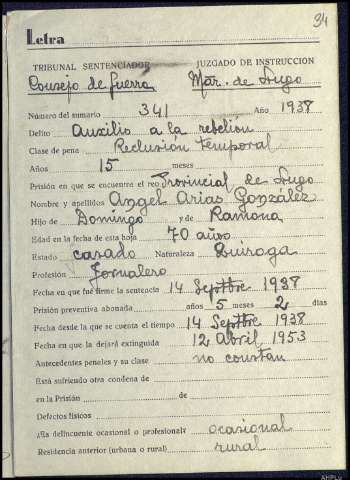 34
Letra
TRIBUNAL SENTENCIADOR JUZGADO DE INSTRUCCIÓN
Consejo de guerra Mar. de Lugo
Número del sumario 341 Año 1938
Delito Auxilio a la rebelión
Clase de pena Reclusión temporal
Años 15 meses
Prisión en que se encuentra el reo Provincial de Lugo
Nombre y apellidos Angel Arias González
Hijo de Domingo y de Ramona
Edad en la fecha de esta hoja 70 años
Estado casado Naturaleza Quiroga
Profesión Jornalero
Fecha en que fué firme la sentencia 14 Septtbre 1938
Prisión preventiva abonada años 5 meses 2 días
Fecha desde la que se cuenta el tiempo 14 Septtbre 1938
Fecha en que la dejará extinguida 12 Abril 1953
Antecedentes penales y su clase no constan
Está sufriendo otra condena de
en la Prisión de
Defectos físicos
¿Es delincuente ocasional o profesional? ocasional
Residencia anterior (urbana o rural) rural
AHPLu